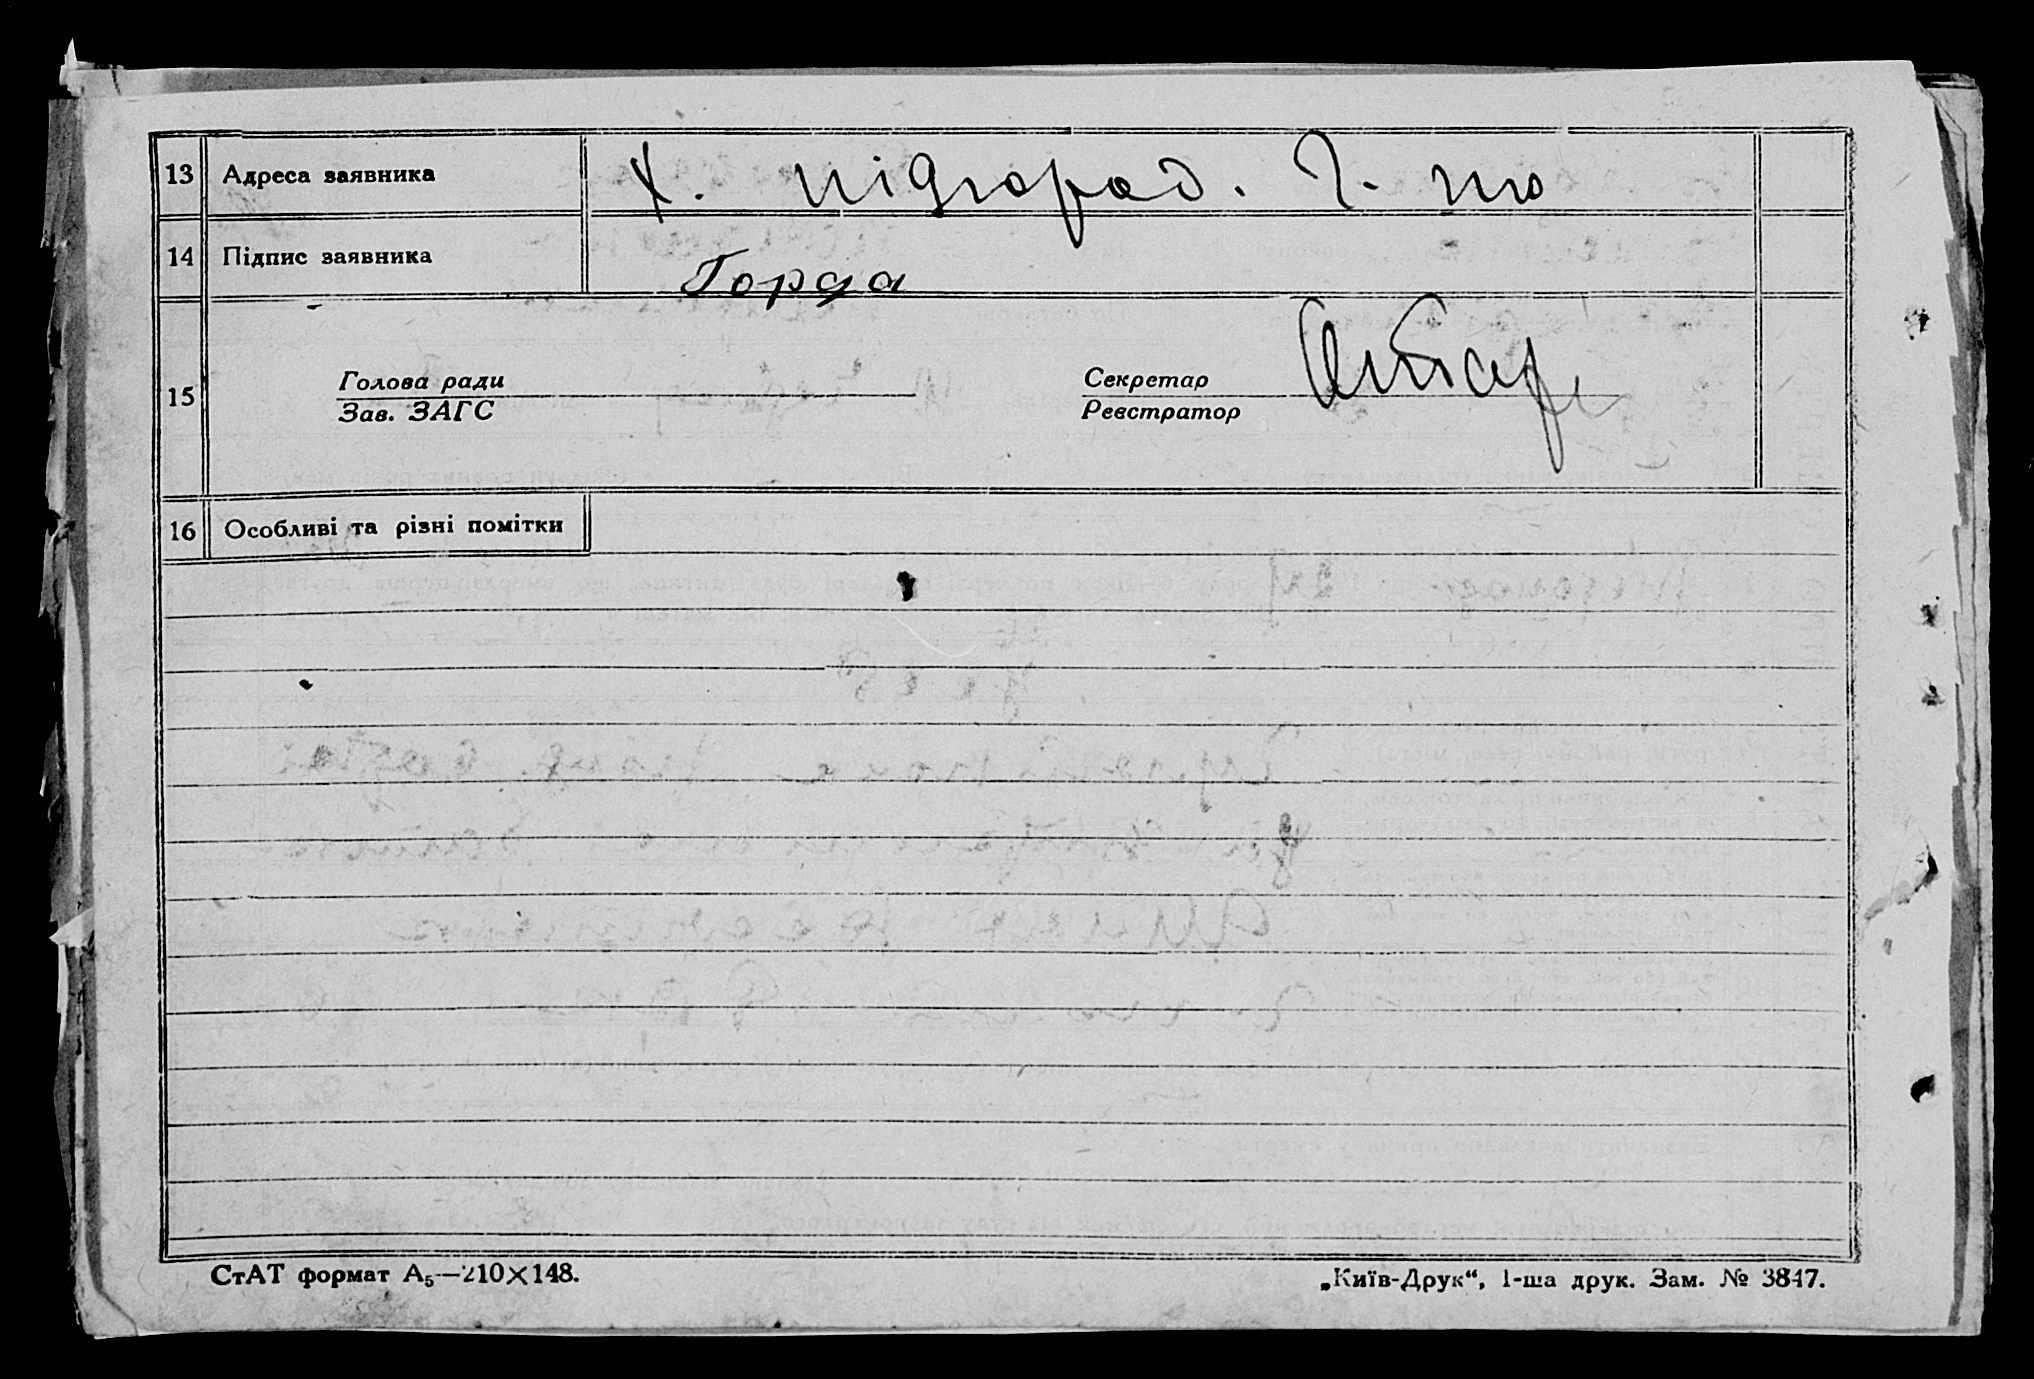 13 Адреса заявника Х. підгород. Г. то
14 Підпис заявника Горда
15 Голова ради Секретар
Зав. ЗАГС Реєстратор
16 Особливі та різні помітки
СтАТ формат А5—210×148. „Київ-Друк“, 1-ша друк. Зам. № 3847.